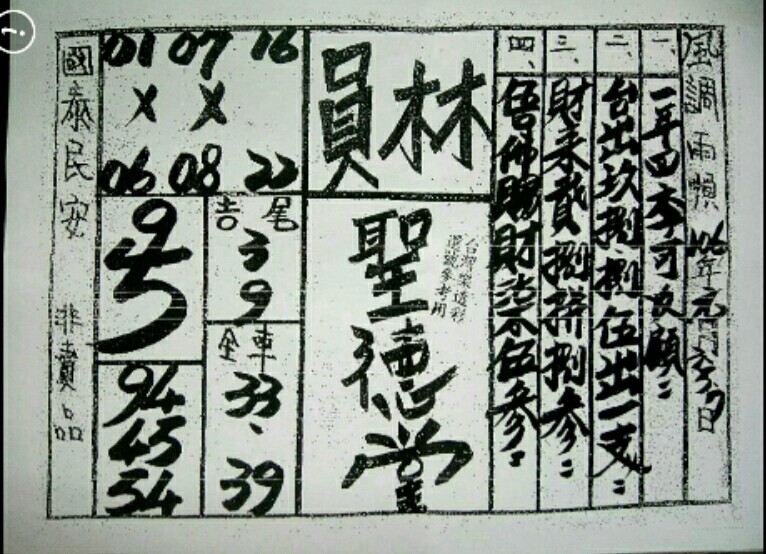 風調雨順 106年元月參日
一、一年四季可先願：
二、台出玖捌捌伍出一支：
三、財來貳捌拼捌參：
四、伍佛賜財 不伍參：
林員
聖德堂
台灣樂透彩
選號參考用
01 07 16
X X
06 08 22
吉尾
3
9
全車
33、
39
9
45
94
45
54
國泰民安 非賣品